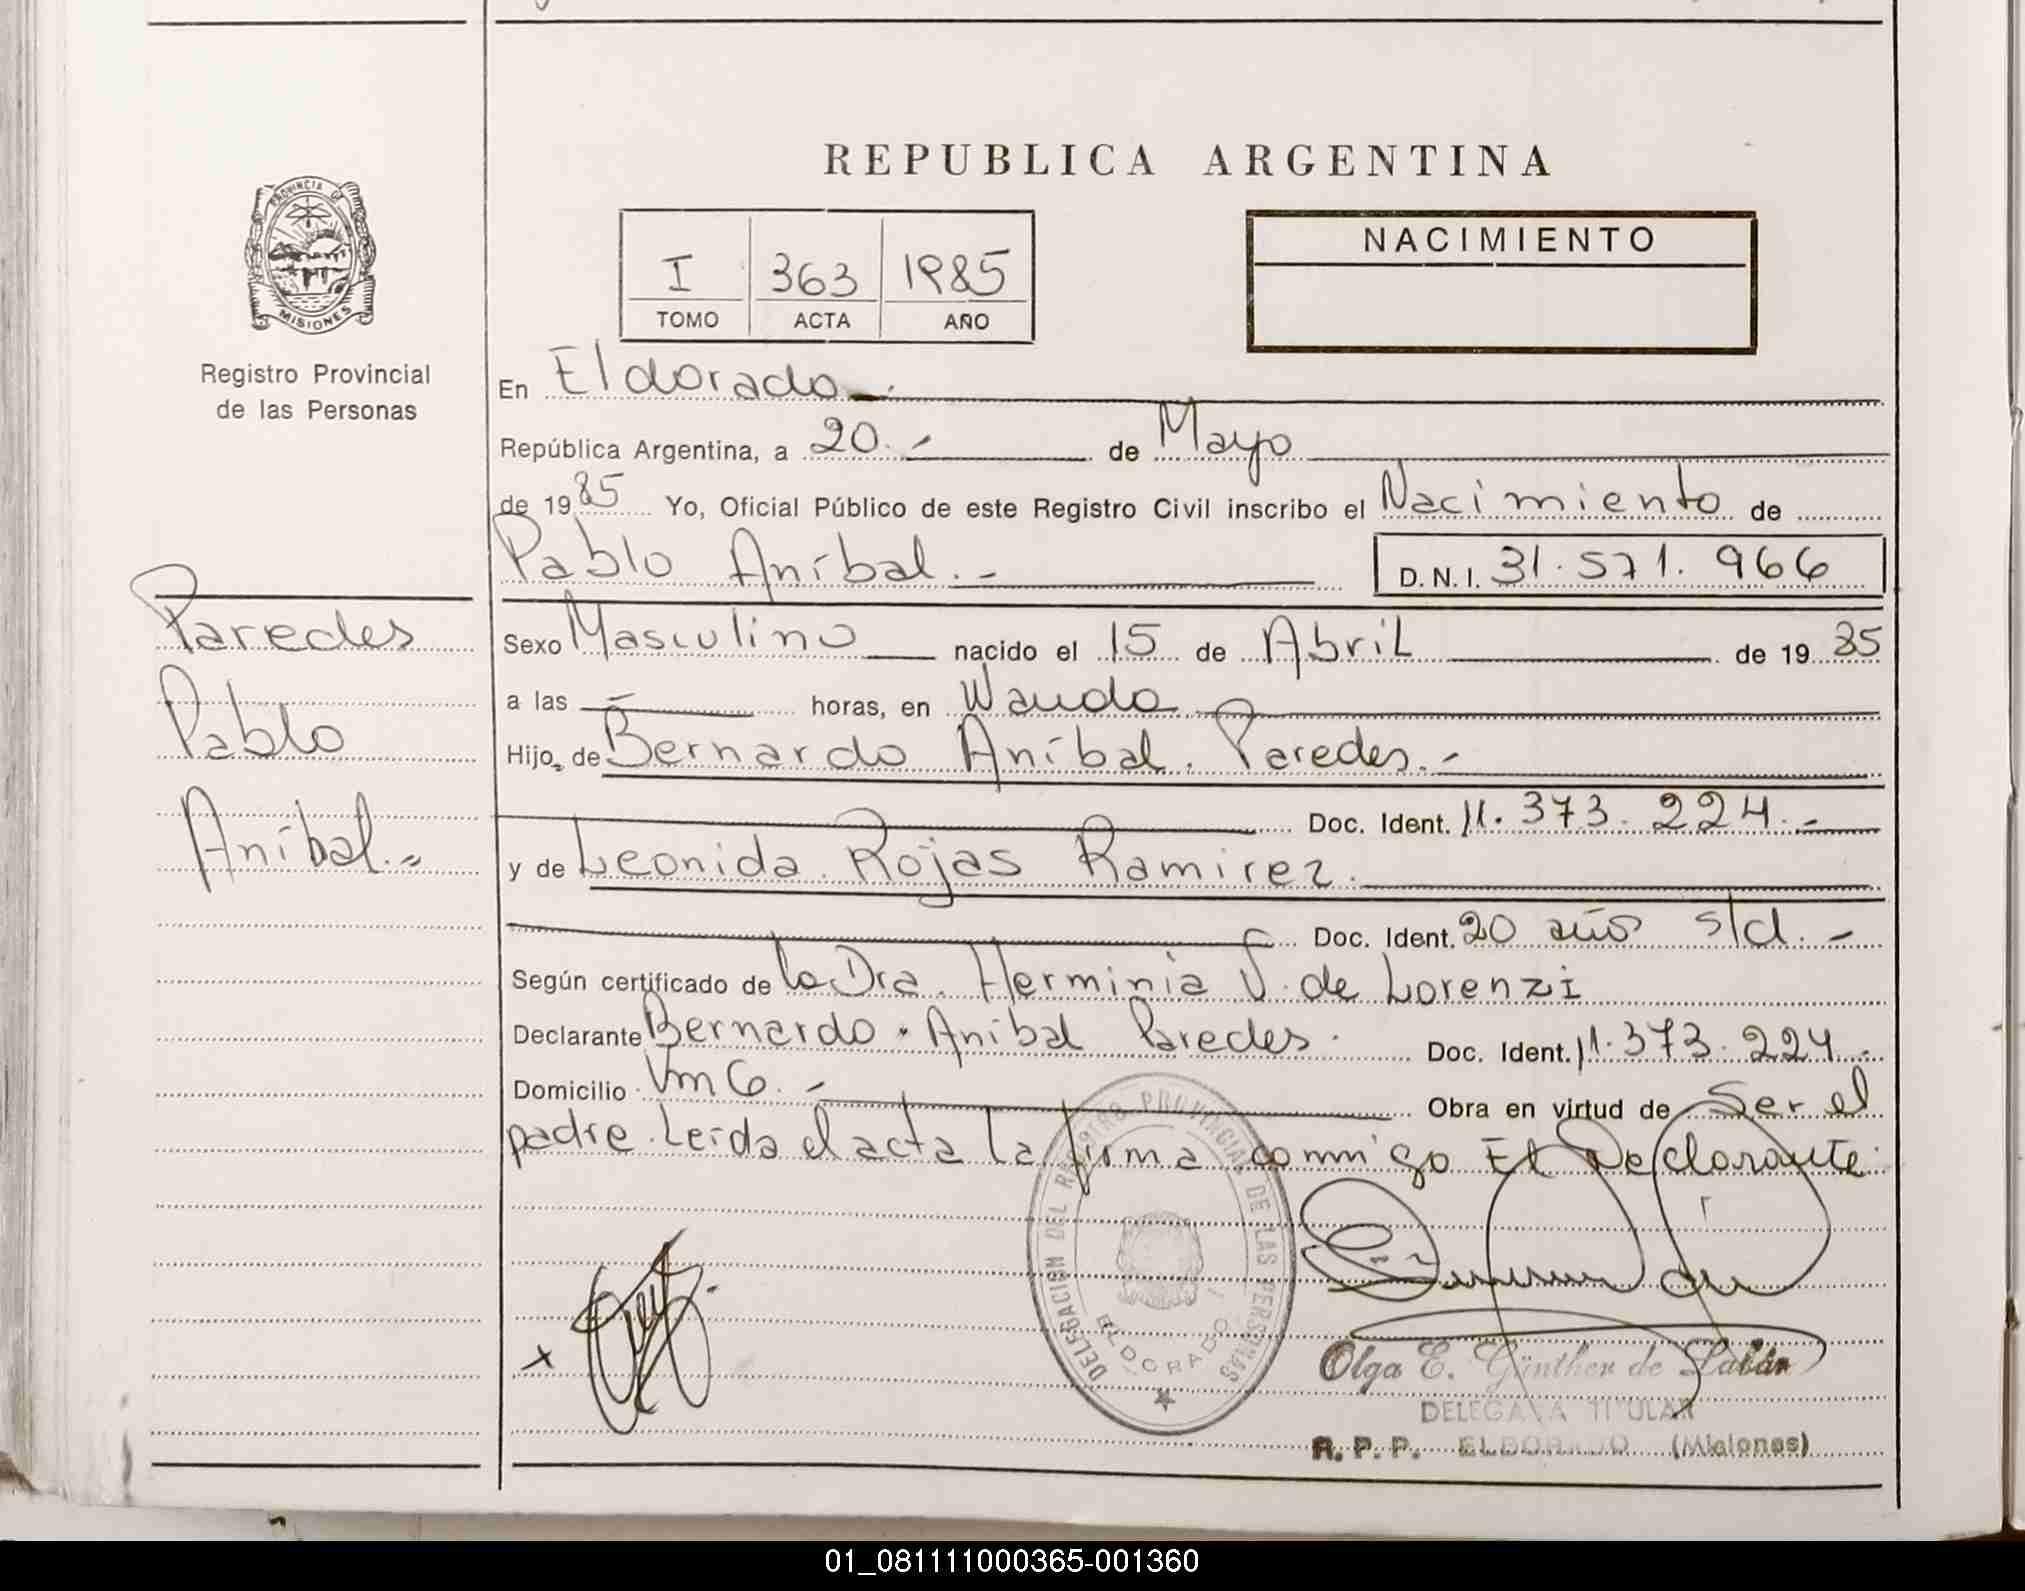 REPUBLICA ARGENTINA
PROVINCIA DE
MISIONES
Registro Provincial
de las Personas
I 363 1985
TOMO ACTA AÑO
NACIMIENTO
En Eldorado.
República Argentina, a 20.- de Mayo
de 1985 Yo, Oficial Público de este Registro Civil inscribo el Nacimiento de
Pablo Aníbal.- D.N.I. 31.571.966
Paredes
Pablo
Aníbal.-
Sexo Masculino nacido el 15 de Abril de 1985
a las - horas, en Wanda
Hijo de Bernardo Aníbal. Paredes.-
Doc. Ident. 11.373.224.-
y de Leonida Rojas Ramirez.
Doc. Ident. 20 años s/d.-
Según certificado de la Dra. Herminia S. de Lorenzi
Declarante Bernardo Aníbal Paredes. Doc. Ident. 11.373.224.-
Domicilio Vm Co.- Obra en virtud de Ser el
padre. Leída el acta la firma conmigo El Declarante.
DELEGACION DEL REGISTRO PROVINCIAL DE LAS PERSONAS
ELDORADO
x
Olga E. Günther de
DELEGADA TITULAR
R.P.P. ELDORADO (Misiones)
01_081111000365-001360